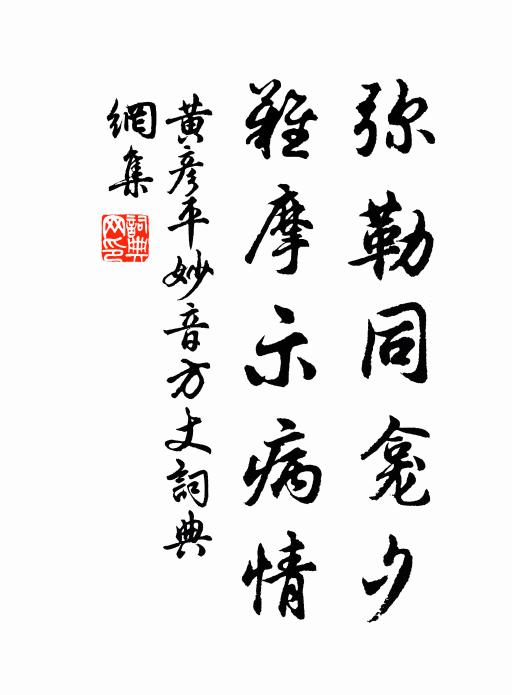 弥勒同龛夕
難摩示病情
黃彥平妙音方丈詞典
網集
詞典
网印